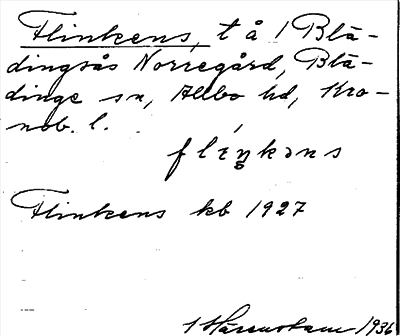 Flinkens, t å 1 Blä-
dingsås Norregård, Blä-
dinge sn, Allbo hd, Kro-
nob. l.
flíŋkəns
Flinkens kb 1927
1936